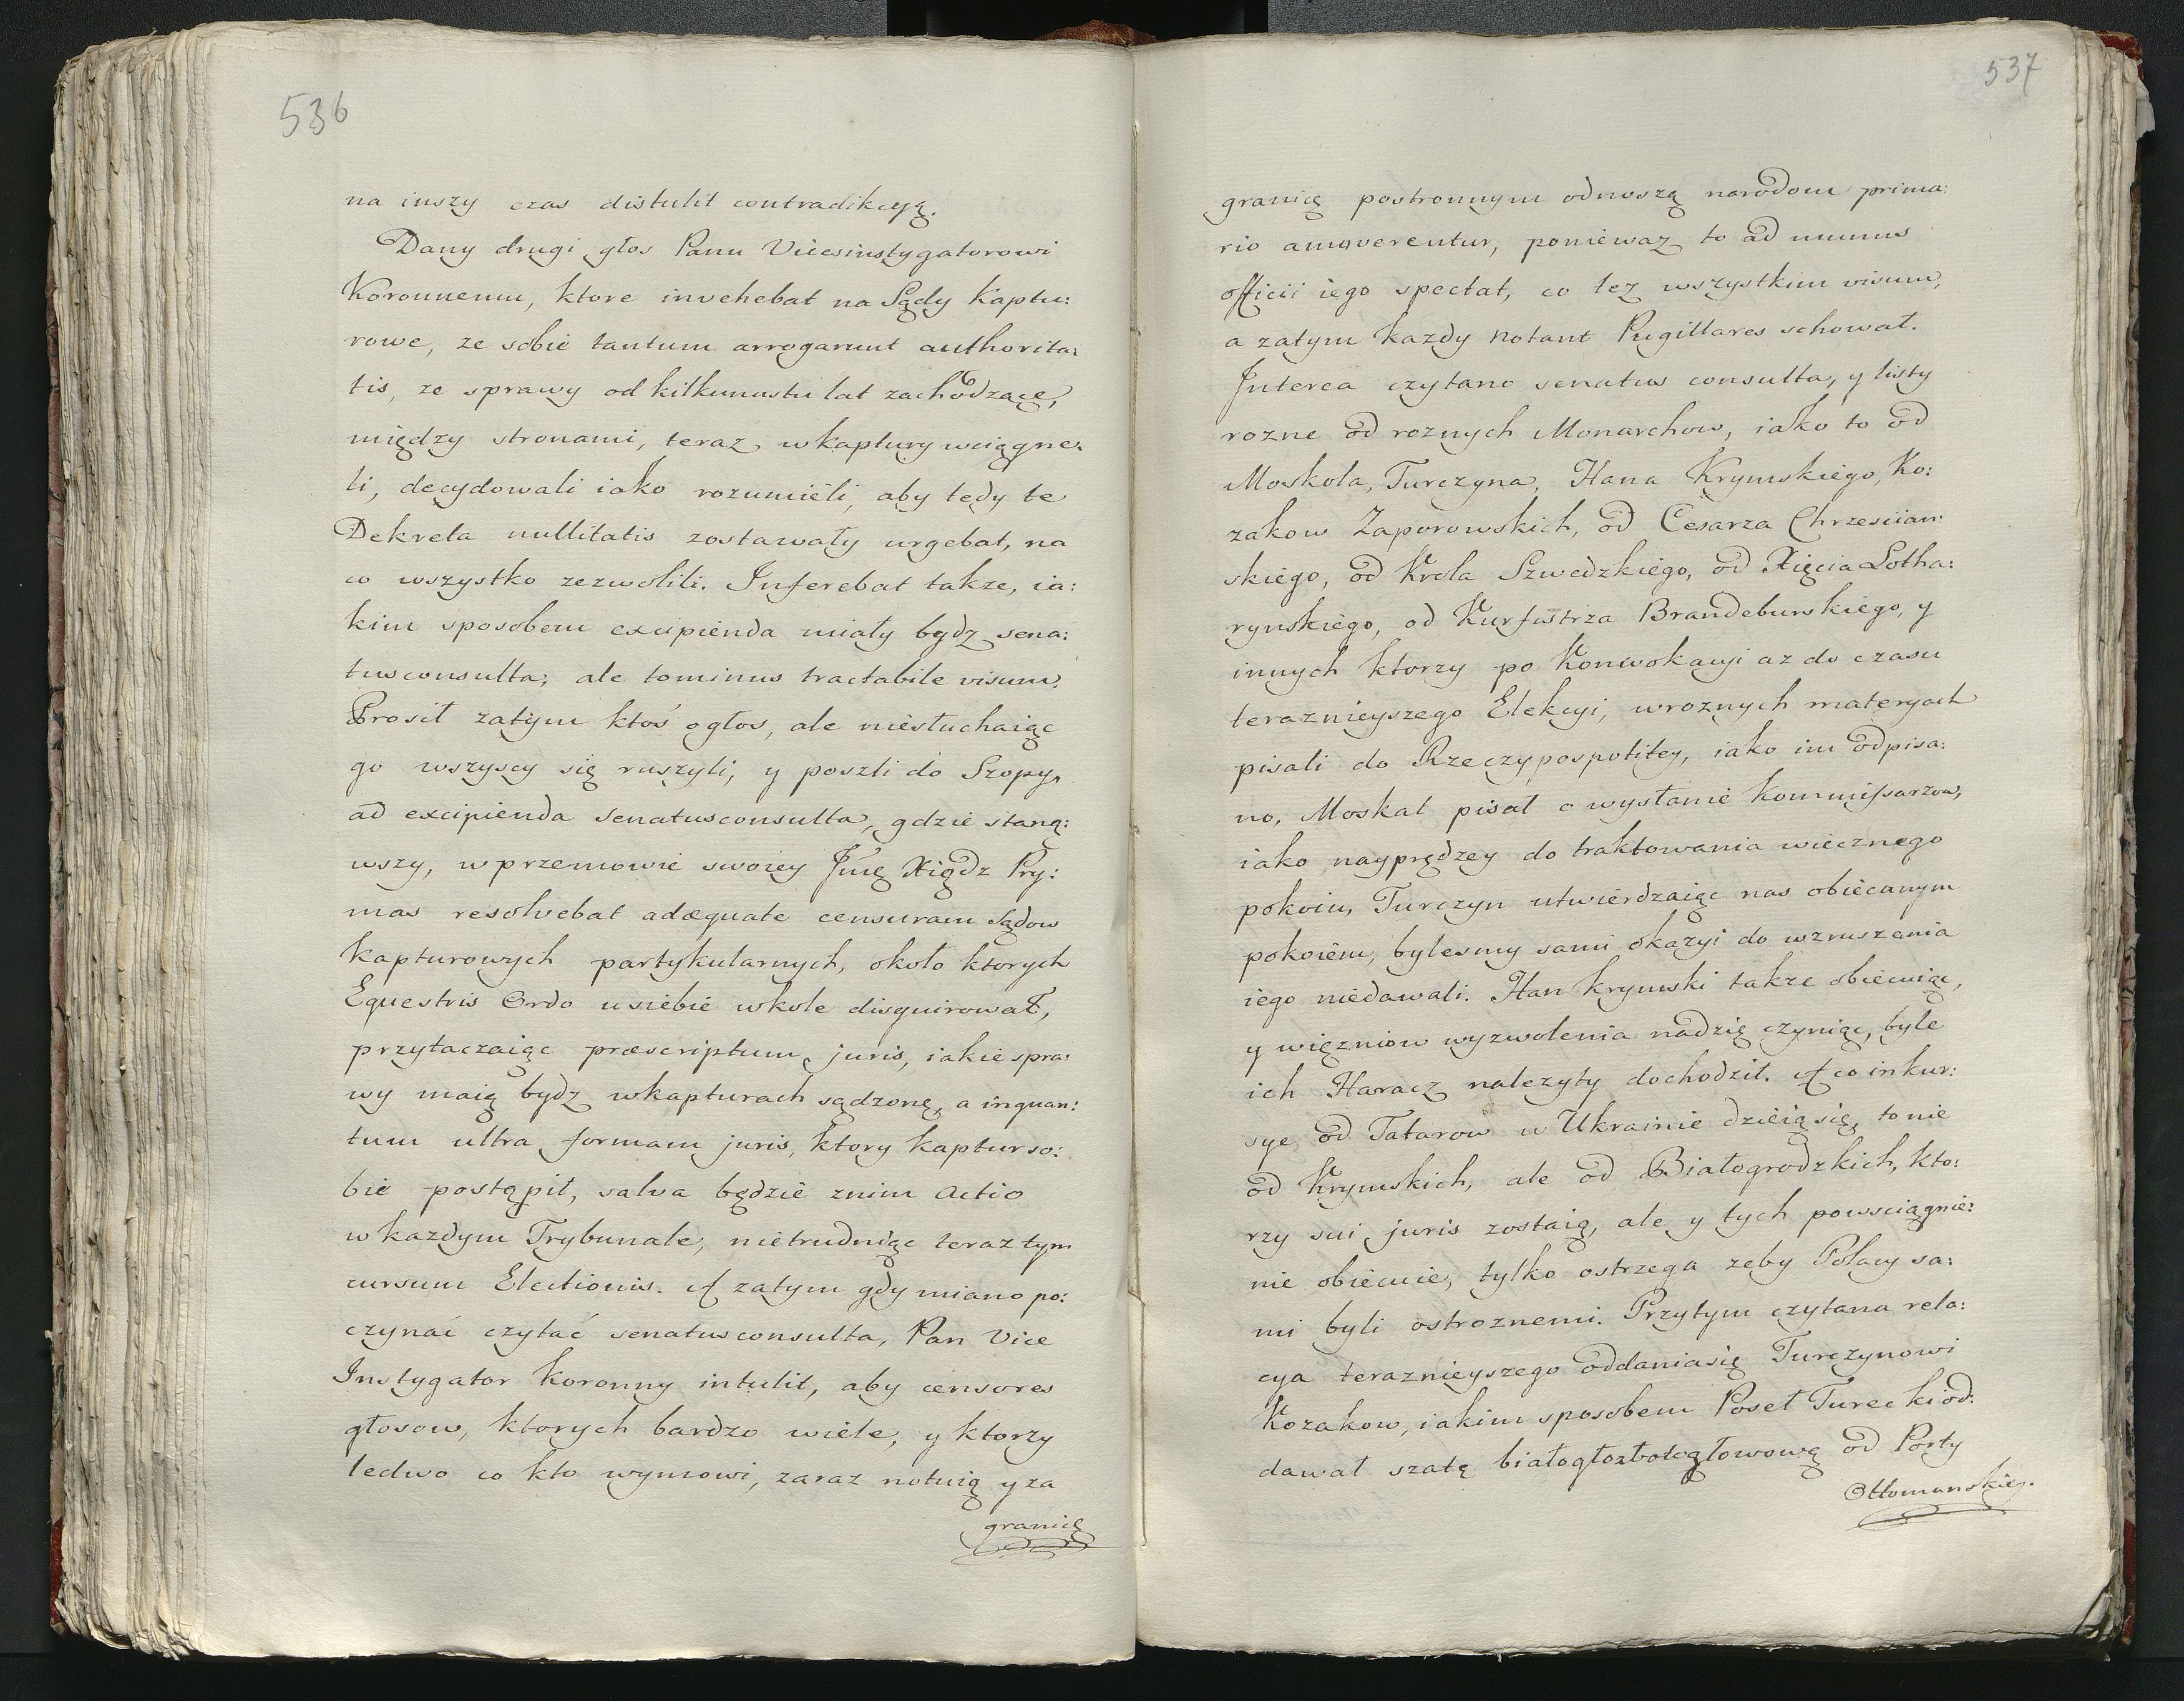 536
na inszy czas distulit contradikcyą.
Dany drugi głos Panu Vicesinstygatorowi
Koronnemu, ktore invehebat na Sądy Kaptu:
rowe, ze sobie tantum arrogarunt authorita:
tis, ze sprawy od kilkunustu lat zachodzące,
między stronami, teraz w kaptury wciągne:
li, decydowali iako rozumieli, aby tedy te
Dekreta nullitatis zostawały urgebat, na
co wszystko zezwolili. Inferebat takze, ia:
kim sposobem excipienda miały bydz sena:
tusconsulta, ale tominus tractabile visum.
Prosił zatym ktoś ogłos, ale niesłuchaiąc
go wszyscy się ruszyli, y poszli do Szopy,
ad excipienda senatusconsulta, gdzie staną:
wszy, w przemowie swoiey Jmć Xiądz Pry:
mas resolvebat adæquate censuram sądow
kapturowych partykularnych, około ktorych
Equestris Ordo usiebie wkole disquirował,
przytaczaiąc præscriptum juris, iakie spra:
wy maią bydz wkapturach sądzonę, a inquan:
tum ultra formam juris, ktory kaptur so:
bie postąpił, salva będzie znim actio
w kazdym Trybunale, nietrudniąc teraz tym
cursum Electionis. A zatym gdy miano po:
czynać czytać senatusconsulta, Pan Vice
Instygator koronny intulit, aby censores
głosow, ktorych bardzo wiele, y ktorzy
ledwo co kto wymowi, zaraz notuią y za
granicę
537
granicę postronnym odnoszą narodom prima:
rio amoverentur, poniewaz to ad munus
officii iego spectat, co tez wszystkim visum,
a zatym kazdy notant Pugillares schował.
Interea czytano senatus consulta, y listy
rozne od roznych Monarchow, iako to od
Moskola, Turczyna, Hana Krymskiego, Ko:
zakow Zaporowskich, od Cesarza Chrzescian:
skiego, od Krola Szwedzkiego, od Xięcia Lotha:
rynskiego, od Kurfistrza Brandeburskiego, y
innych ktorzy po Konwokacyi az do czasu
teraznieyszego Elekcyi, wroznych materyach
pisali do Rzeczypospolitey, iako im odpisa:
no, Moskal pisał o wysłanie Kommissarzow,
iako nayprędzey do traktowania wiecznego
pokoiu, Turczyn utwierdzaiąc nas obiecanym
pokoiem, bylesmy sami okazyi do wzruszenia
iego niedawali. Han krymski takze obiecuiąc,
y więzniow wyzwolenia nadzię czyniąc, byle
ich Haracz nalezyty dochodził. A co inkur:
sye od Tatarow w Ukrainie dzieią się, to nie
od Krymskich, ale od Białogrodzkich, kto:
rzy sui juris zostaią, ale y tych powsciągnie:
nie obiecuie, tylko ostrzega zeby Polacy sa:
mi byli ostroznemi. Przytym czytana rela:
cya teraznieyszego oddaniasię Turczynowi
Kozakow, iakim sposobem Poseł Turecki od:
dawał szatę białogłozłotogłowową od Porty
Ottomanskiey.